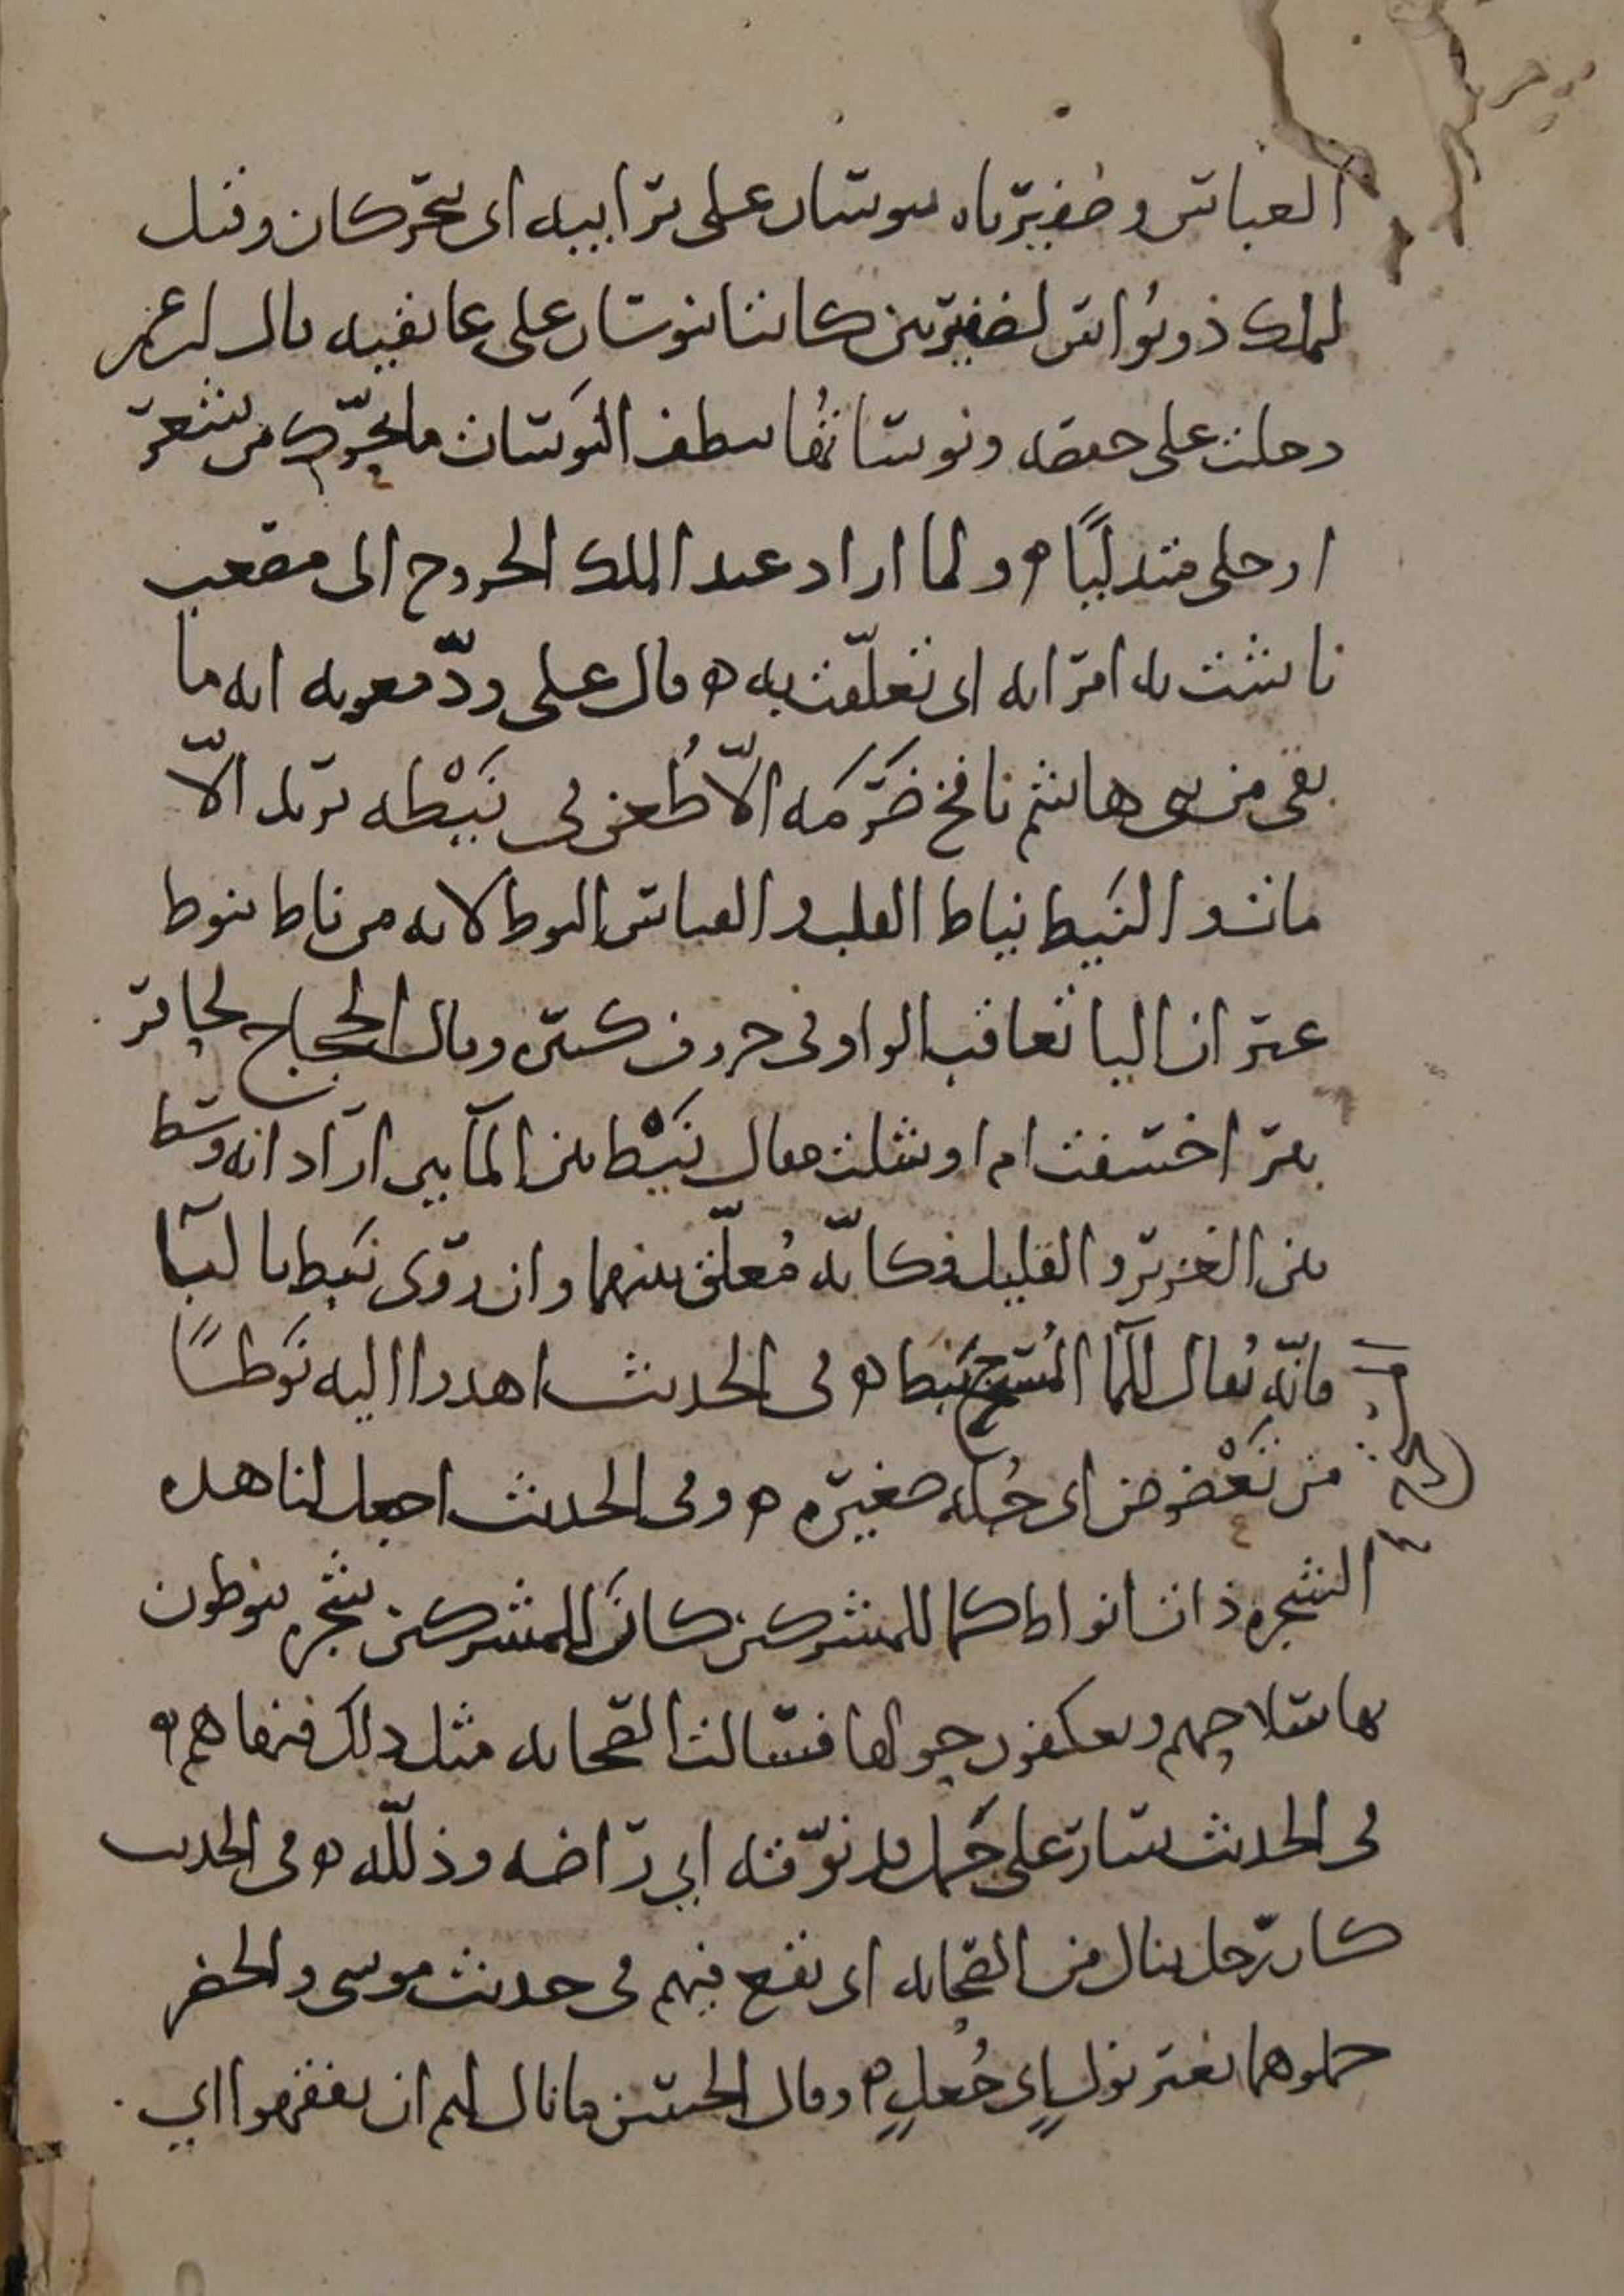 العباس وضفيرتاه ينوسان على ترائبيه اى يتحركان وقيل
لملك ذو نُواس لضفيرتين كانتا تنوسان على عاتقيه قال ابن عمر
دخلت على حفصه ونوساتُها تنطف النَوَسَات ما تحرّك من شعر
او حلى متدليًا ه ولما اراد عبد الملك الخروج الى مصعب
ناشت به امراته اى تعلّقت به ه قال على ودّ معويه انه ما
بقى من بنى هاشم نافخ ضَرَمَه الّا طُعن فى نَيْطه يريد الّا
مات والنَيط نياط القلب والقياس النوط لانه من ناط ينوط
غير ان اليا تعاقب الواو فى حروف كثيره وقال الحجاج لحافر
بير اخسفت ام اوشلت فقال نَيْط بين المآيين اراد انه وسط
بين الغزير والقليل فكانّه مُعلّق بينهما وان روى نَبَط بالبآ
فانّه يُقال للمآ المُستخرج نَبَط ه فى الحديث اهدوا اليه نَوطًا
من تَعْضوض اى جُلّه صغيره ه وفى الحديث اجعل لنا هذه
الشجره ذات انواط كما للمشركين كان للمشركين شجره ينوطون
بها سلاحهم ويعكفون حولها فسالت الصحابه مثل ذلك فنهاهم ه
فى الحديث سار على جَمل قد نوّقه اى راضه وذلّله ه فى الحديث
كان رجل ينال من الصحابه اى يقع فيهم فى حديث موسى والخضر
حملوهما بغير نولٍ اى جُعلٍ ه وقال الحسن ما نال لهم ان يفقهوا اى